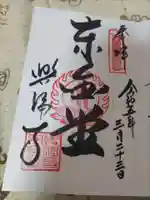 奉拝
令和五年
三月二十三日
東金堂
興福寺